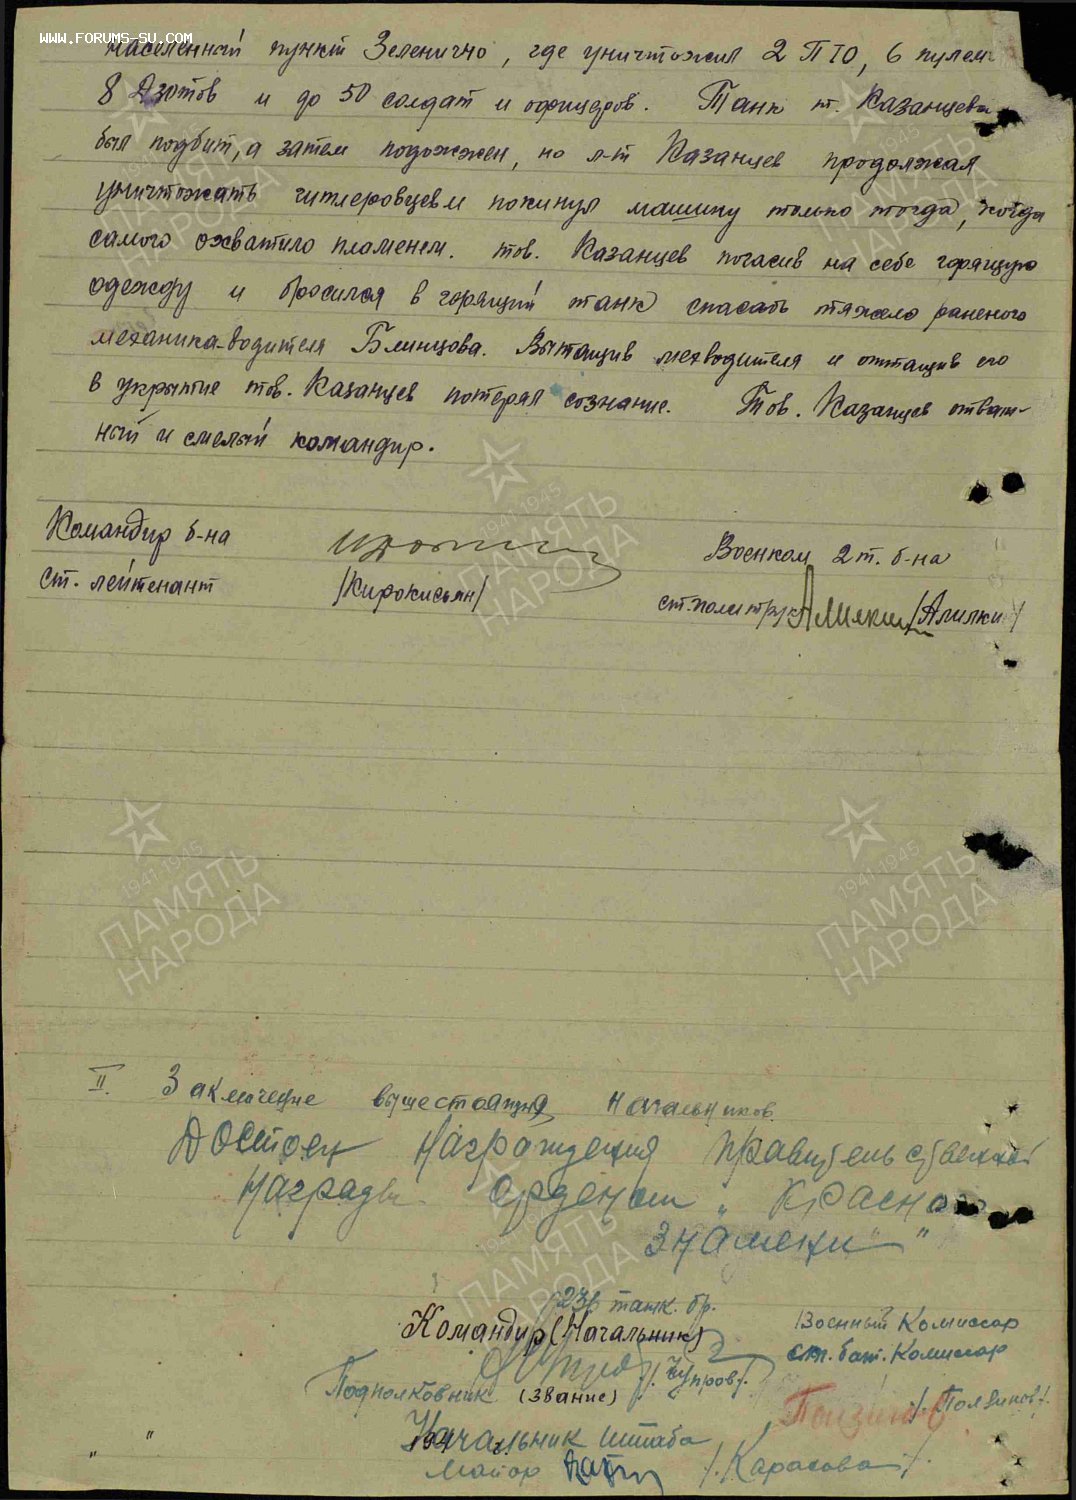 WWW.FORUMS-SU.COM
населенный пункт Зеленично, где уничтожил 2 ПТО, 6 пулем
8 Дзотов и до 50 солдат и офицеров. Танк т. Казанцева
был подбит, а затем подожжен, но л-т Казанцев продолжая
уничтожать гитлеровцев и покинул машину только тогда, когда
самого охватило пламенем. тов. Казанцев погасив на себе горящую
одежду и бросился в горящий танк спасать тяжело раненого
механика-водителя Блинцова. Вытащив мехводителя и оттащив его
в укрытие тов. Казанцев потерял сознание. Тов. Казанцев отваж-
ный и смелый командир.
Командир б-на
ст. лейтенант /Киракисьян/
Военком 2 т. б-на
ст. политрук /Алипки
1941-1945
ПАМЯТЬ
НАРОДА
II. Заключение вышестоящих начальников
Достоен награждения правительственной
награды орденом „Красного
Знамени"
236 танк. бр.
Командир (Начальник)
/Чупров/.
Подполковник (звание)
Военный Комиссар
ст. бат. Комиссар
/. Ползиков/.
" " 194 г.
Начальник штаба
Майор /. Карасова /.